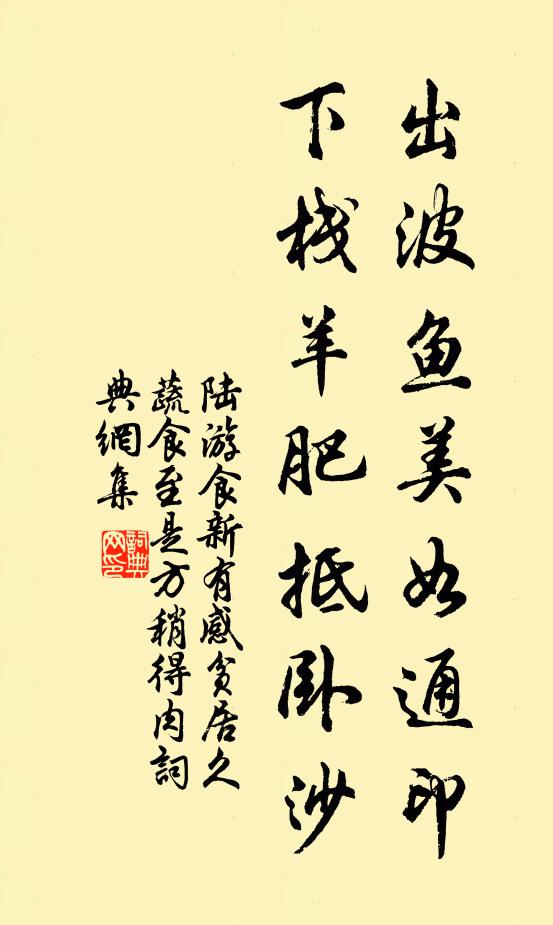 出波鱼美如通印
下栈羊肥抵卧沙
陆游食新有感贫居久
蔬食至是方稍得肉詞
典網集
詞典
网印